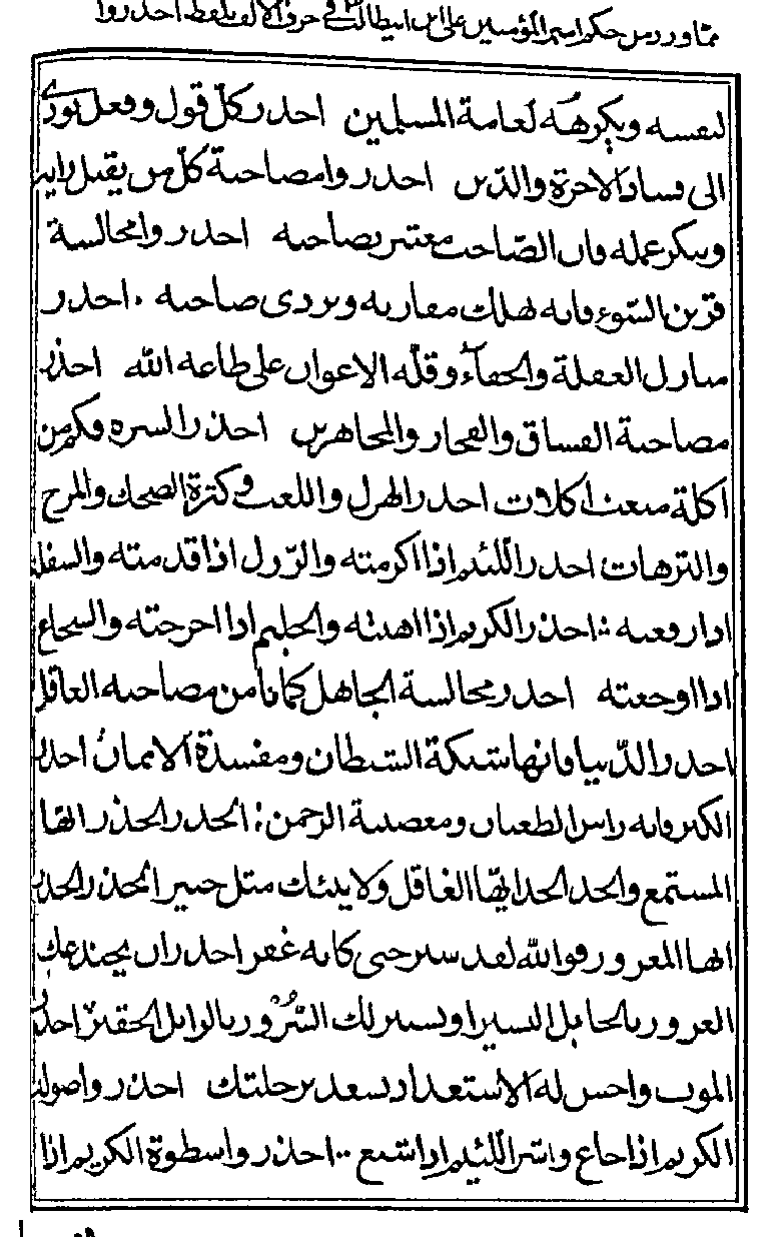 مما ورد من حكم امير المؤمنين على ابن ابيطالب في حرف الالف بلفظ احذروا
لنفسه ويكرهه لعامة المسلمين احذر كل قول وفعل يؤدى
الى فساد الاخرة والدين احذروا مصاحبة كل من يقبل رايه
وينكر عمله فان الصاحب معتبر بصاحبه احذروا مجالسة
قرين السوء فانه يهلك مقاربه ويردى صاحبه احذر
منازل الغفلة والجفاء وقلة الاعوان على طاعة الله احذر
مصاحبة الفساق والفجار والمجاهرين احذر الشره فكم من
اكلة منعت اكلات احذر الهزل واللعب وكثرة الضحك والمزح
والترهات احذر اللئيم اذا اكرمته والرذل اذا قدمته والسفلة
اذا رفعته احذر الكريم اذا اهنته والحليم اذا احرجته والشجاع
اذا اوجعته احذر مجالسة الجاهل كما تأمن مصاحبة العاقل
احذر الدنيا فانها شبكة الشيطان ومفسدة الايمان احذر
الكبر فانه راس الطغيان ومعصية الرحمن الحذر الحذر ايها
المستمع والجد الجد ايها الغافل ولا ينبئك مثل خبير الحذر الحذر
ايها المغرور فوالله لقد ستر حتى كانه غفر احذر ان يخدعك
الغرور بالحايل اليسير او يستزلك السرور بالزايل الحقير احذر
الموت واحسن له الاستعداد تسعد برحلتك احذروا صولة
الكريم اذا جاع واشر اللئيم اذا شبع احذروا سطوة الكريم اذا